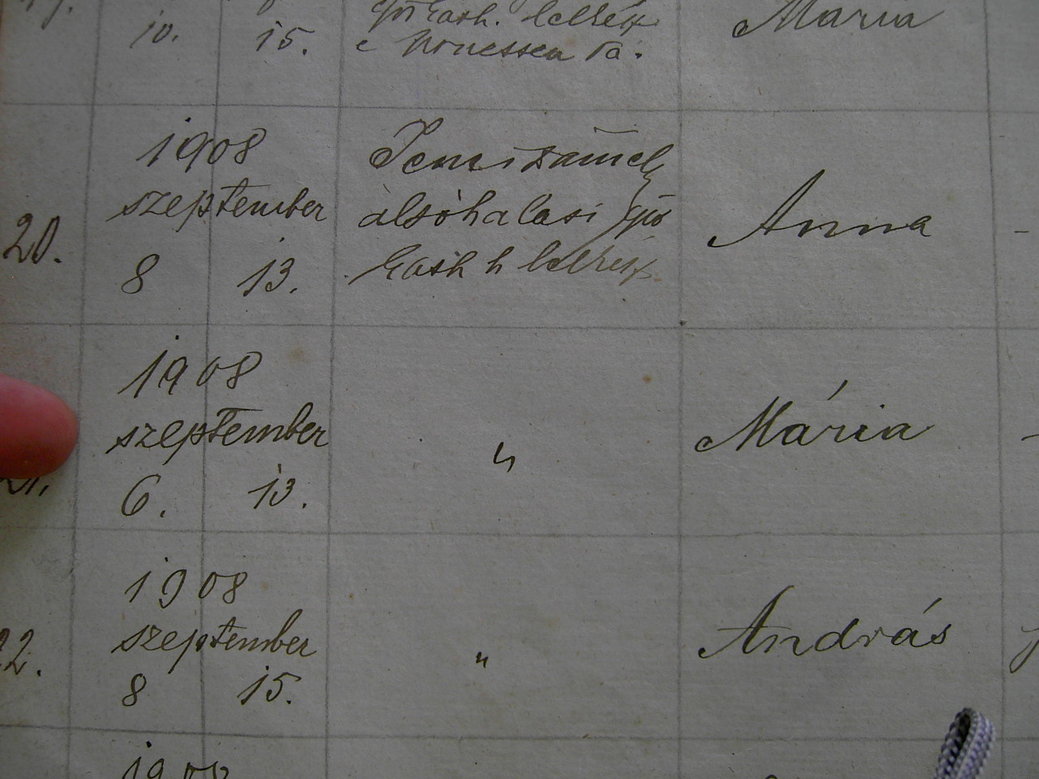 10. 15. gör kath. lelkész Mária
e Monessen Pa.
1908
szeptember alsóhalasi gör Anna
20.
8 13. kath h lelkész
1908
szeptember " Mária
21.
6. 13.
1908
szeptember " András
22.
8 15.
1908